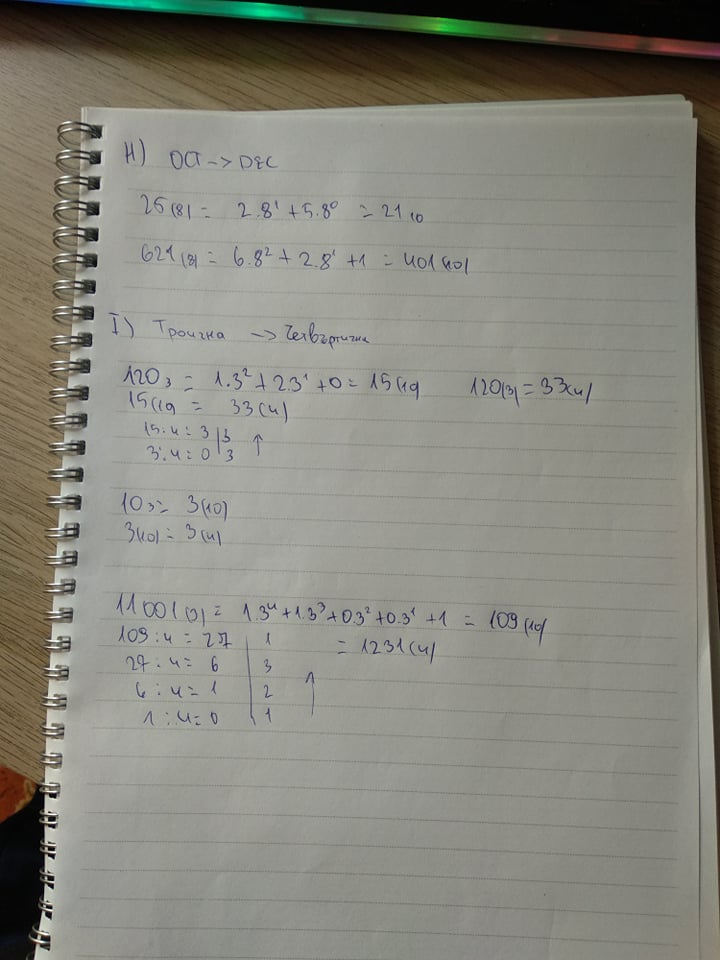 H) OCT -> DEC
25(8) = 2.8¹ + 5.8⁰ = 21 10
621(8) = 6.8² + 2.8¹ + 1 = 401(10)
I) Троична -> Четвъртична
120₃ = 1.3² + 2.3¹ + 0 = 15(10) 120(3) = 33(4)
15(10) = 33(4)
15:4 = 3 | 3 ↑
3:4 = 0 | 3
10₃ = 3(10)
3(10) = 3(4)
11001(3) = 1.3⁴ + 1.3³ + 0.3² + 0.3¹ + 1 = 109(10)
109:4 = 27 | 1 = 1231(4)
27:4 = 6 | 3
6:4 = 1 | 2 ↑
1:4 = 0 | 1